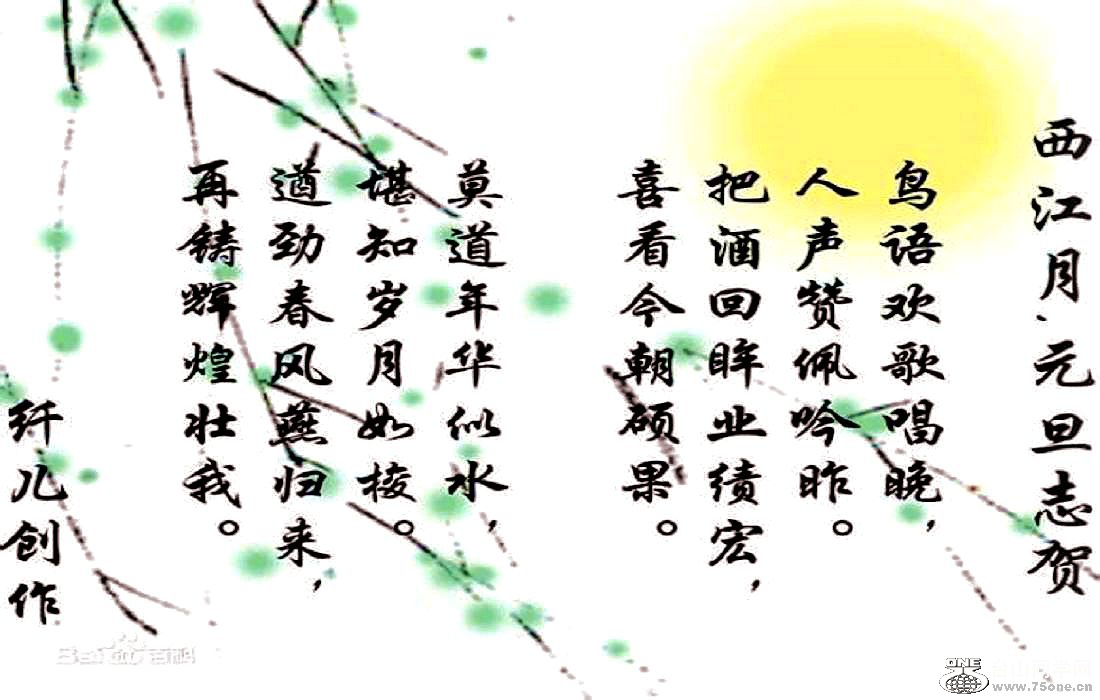 西江月、元旦志贺
鸟语欢歌唱晚，
人声赞佩吟昨。
把酒回眸业绩宏，
喜看今朝硕果。
莫道年华似水，
堪知岁月如梭。
遒劲春风燕归来，
再铸辉煌壮我。
纤儿创作
Baidu百科
ONE
www.75one.cn